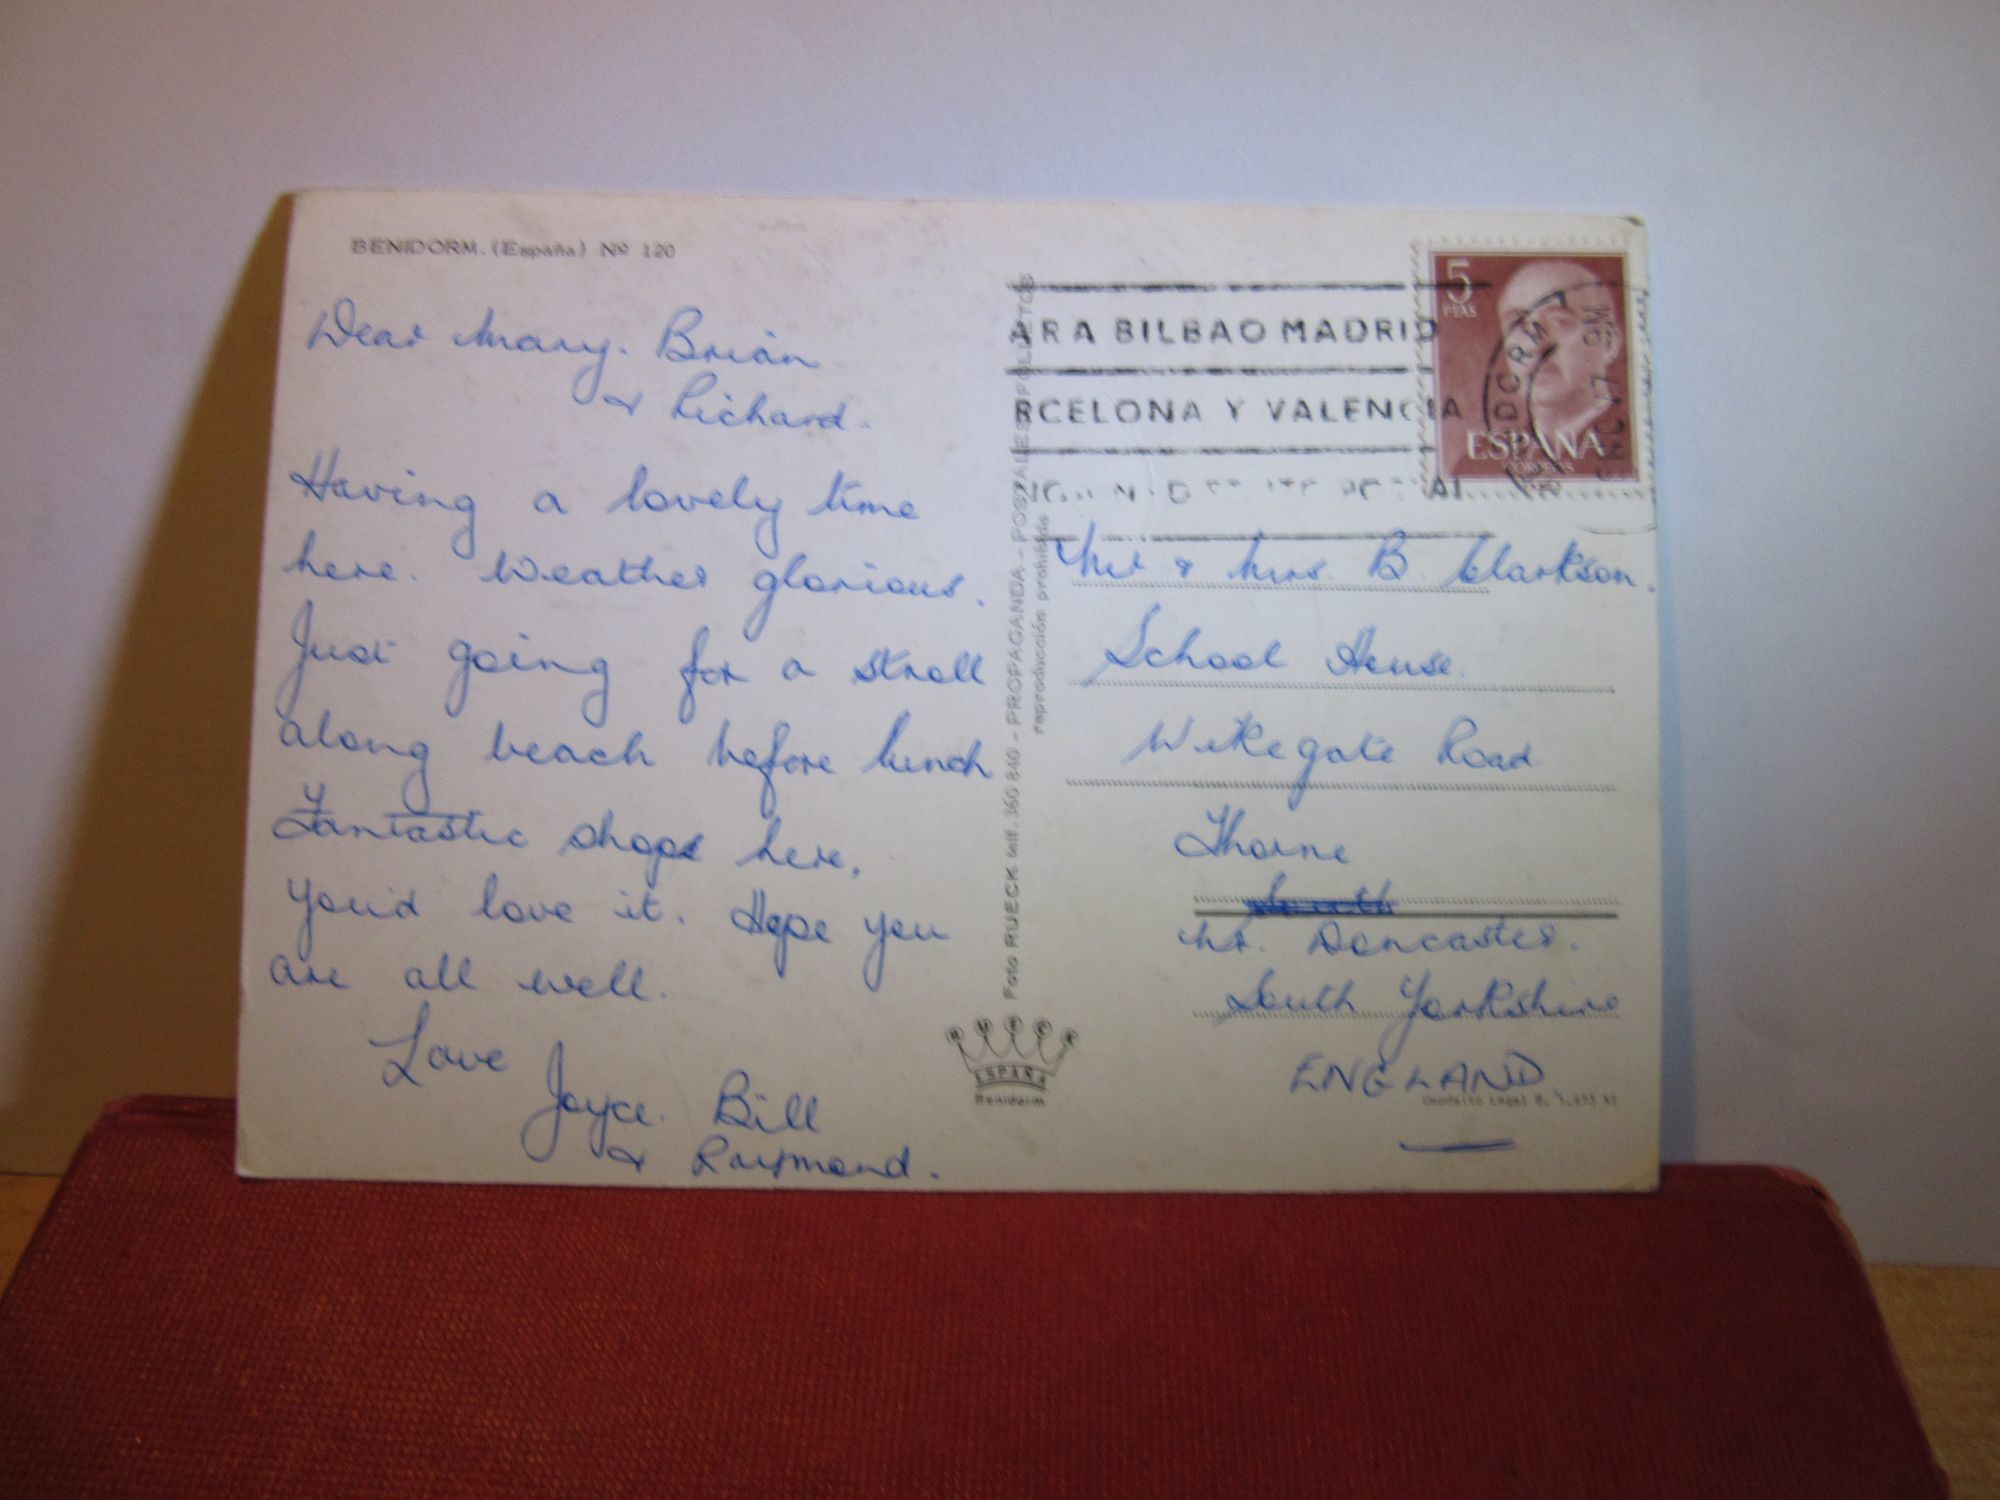 BENIDORM. (España) Nº 120
Dear Mary. Brian
& Richard.
Having a lovely time
here. Weather glorious.
Just going for a stroll
along beach before lunch
Fantastic shops here,
you'd love it. Hope you
are all well.
Love
Joyce. Bill
& Raymond.
Foto RUECK telf. 360 840 - PROPAGANDA - POSTALES FOLLETOS
reproducción prohibida
RUECK
ESPAÑA
Benidorm
ARA BILBAO MADRID
RCELONA Y VALENCIA
5
PTAS
ESPAÑA
CORREOS
IDORM
Mr & Mrs. B. Clarkson.
School House.
Wikegate Road
Thorne
nr. Doncaster.
South Yorkshire
ENGLAND.
Depósito Legal B.